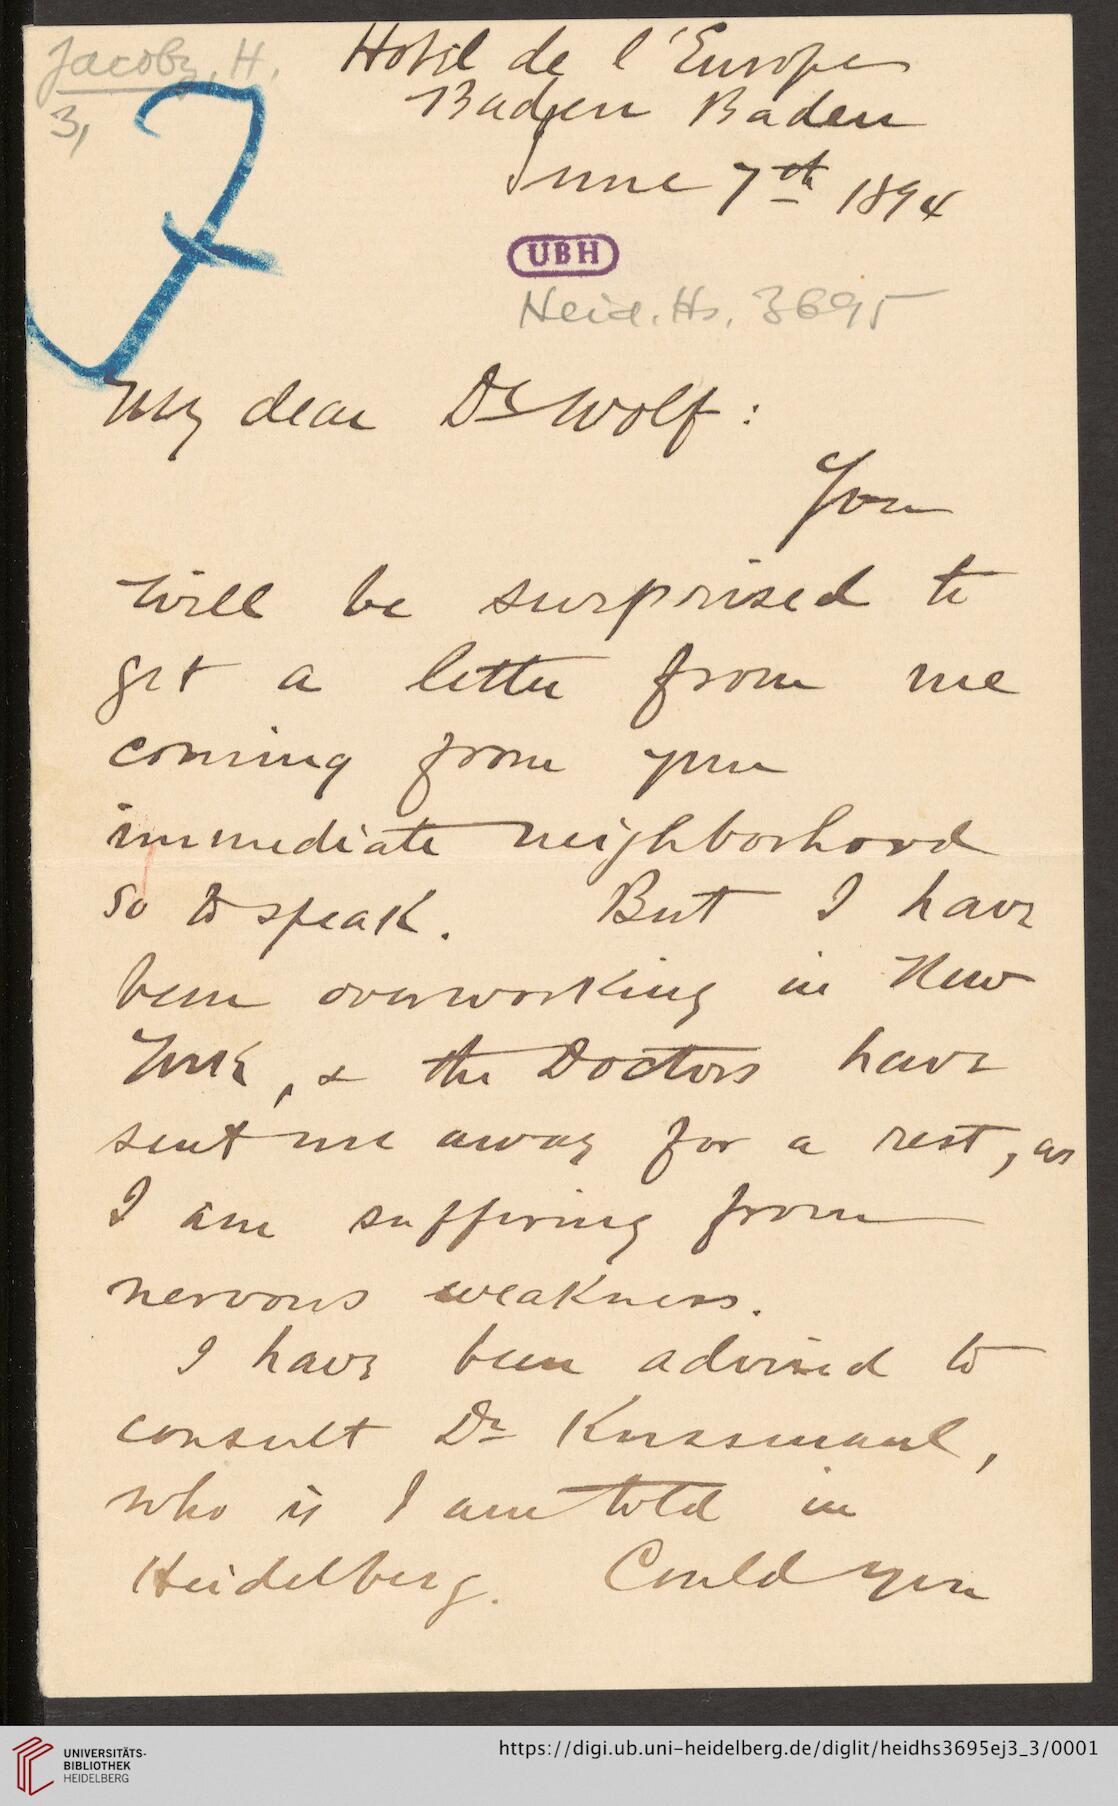 Jacoby, H.
3,
Hotel de l'Europe
Baden Baden
June 7th 1894
UBH
Heid. Hs. 3695
My dear Dr Wolf:
You
will be surprised to
get a letter from me
coming from your
immediate neighborhood
so to speak. But I have
been overworking in New
York, & the Doctors have
sent me away for a rest, as
I am suffering from
nervous weakness.
I have been advised to
consult Dr Kussmaul,
who is I am told in
Heidelberg. Could you
UNIVERSITÄTS-
BIBLIOTHEK
HEIDELBERG
https://digi.ub.uni-heidelberg.de/diglit/heidhs3695ej3_3/0001